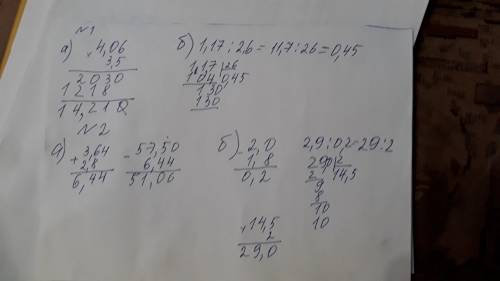 №1
а) × 4,06
3,5
2030
1218
14,210
б) 1,17 : 26 = 11,7 : 26 = 0,45
1,17 | 26
104 0,45
130
130
№2
а) + 3,64
2,8
6,44
- 57,50
6,44
51,06
б) - 2,0
1,8
0,2
2,9 : 0,2 = 29 : 2
29 | 2
2 14,5
9
8
10
10
× 14,5
2
29,0